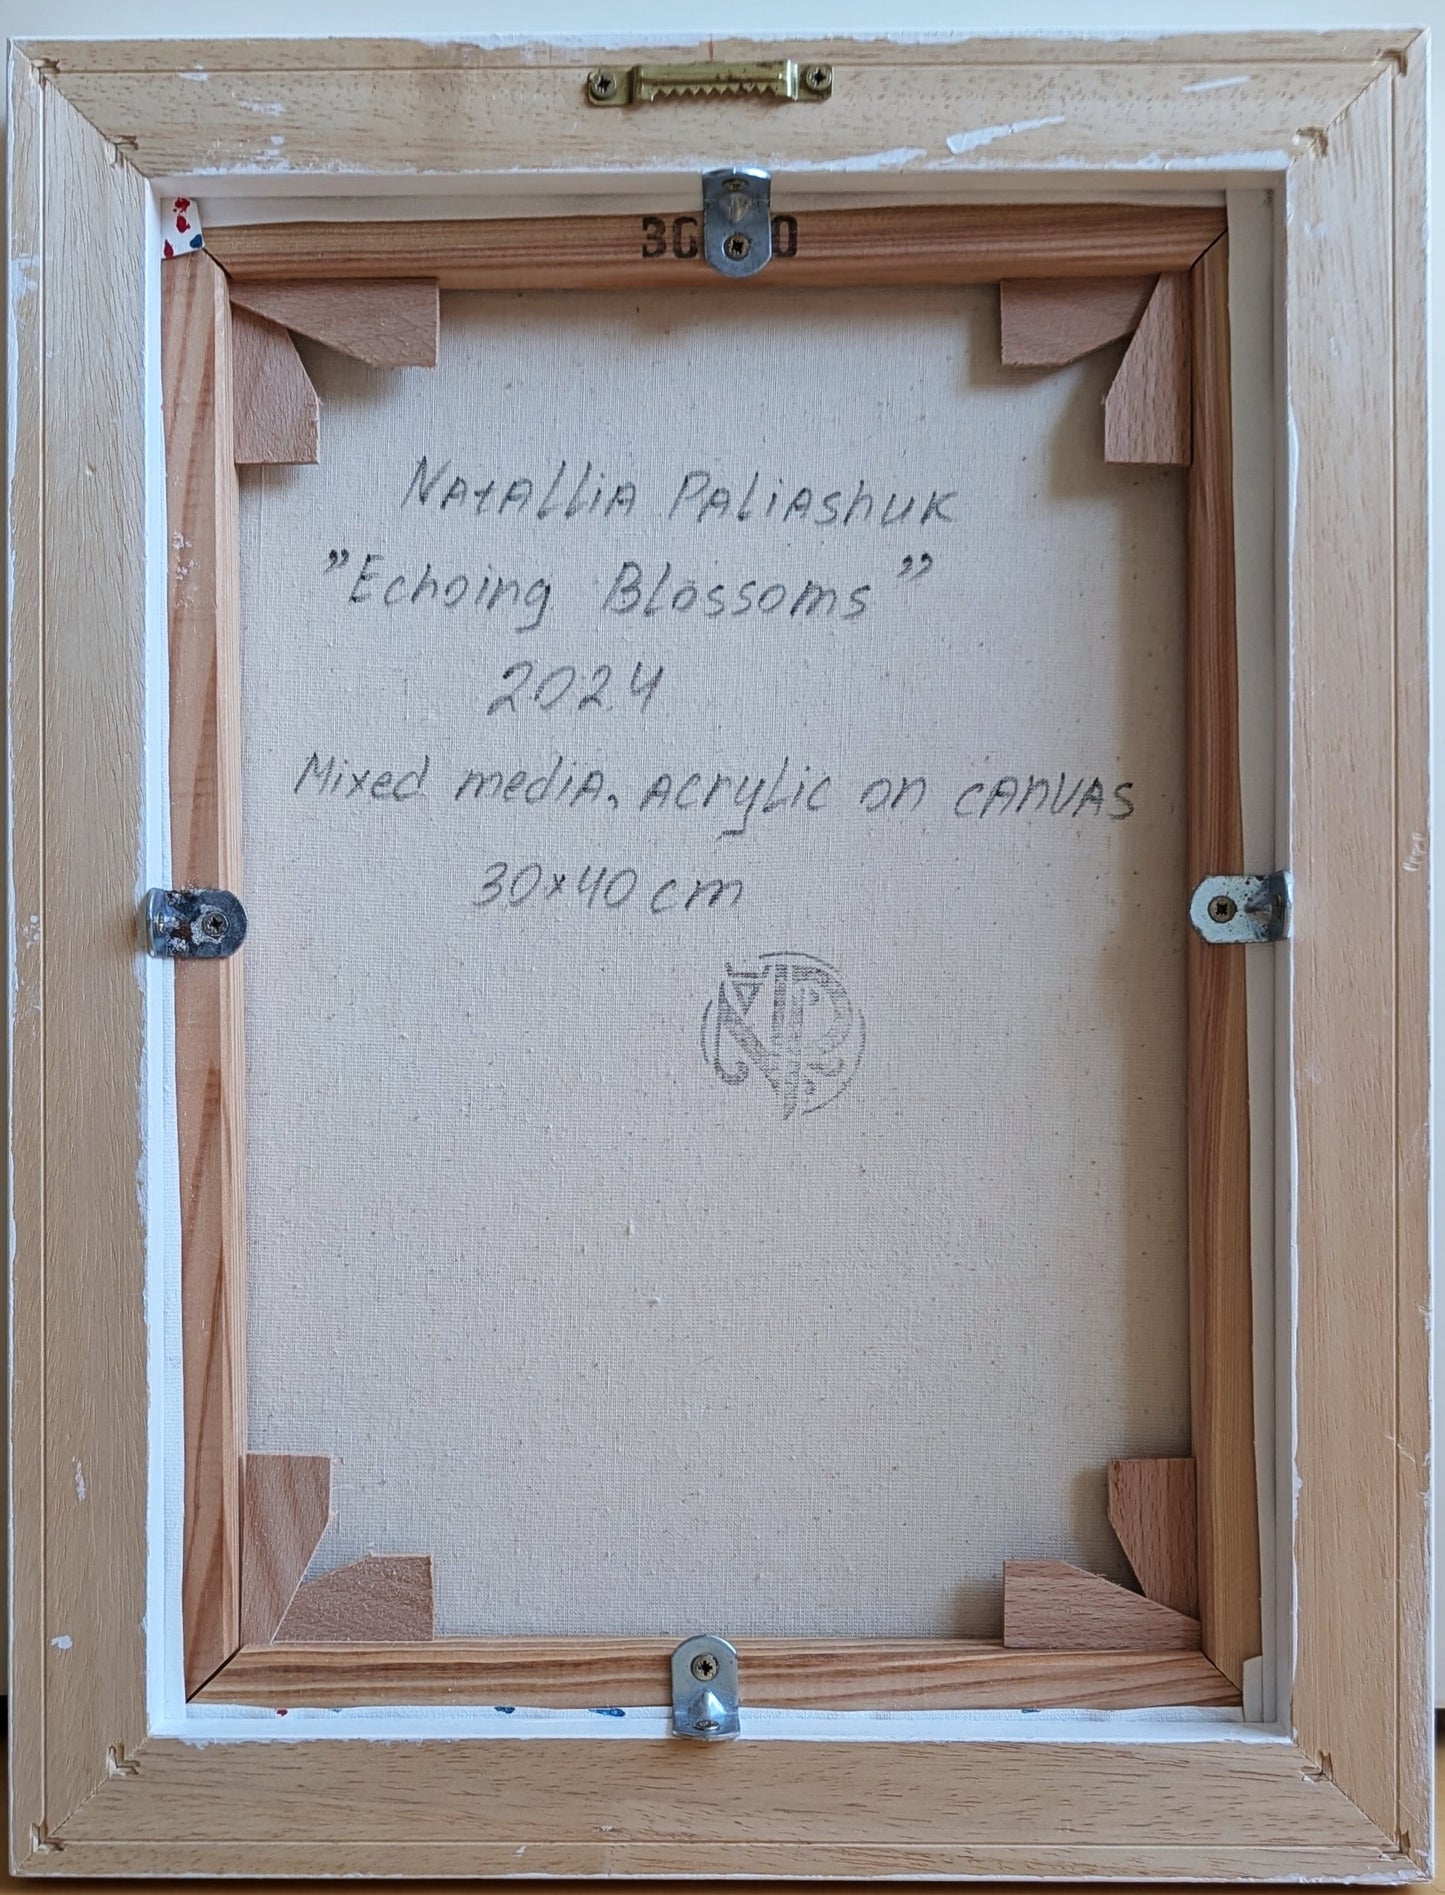 30
Natallia Paliashuk
"Echoing Blossoms"
2024
Mixed media, acrylic on canvas
30x40 cm
NP